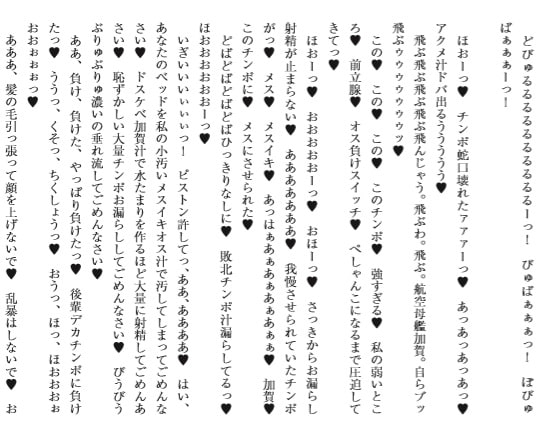 どびゅるるるるるるるるるるーっ！　びゅばぁぁぁっ！　ぼびゅ
ばぁぁぁーっ！
ほおーっ♥　チンポ蛇口壊れたァァァーっ♥　あっあっあっあっ♥
アクメ汁ドバ出るうううううう♥
飛ぶ飛ぶ飛ぶ飛ぶ飛んじゃう。飛ぶわ。飛ぶ。航空母艦加賀。自らブッ
飛ぶゥゥゥゥゥゥッ♥
この♥　この♥　この♥　このチンポ♥　強すぎる♥　私の弱いとこ
ろ♥　前立腺♥　オス負けスイッチ♥　ぺしゃんこになるまで圧迫して
きてっ♥
ほおーっ♥　おおおおおーっ♥　おほーっ♥　さっきからお漏らし
射精が止まらない♥　あああああああ♥　我慢させられていたチンポ
がっ♥　メス♥　メスイキ♥　あっはぁあぁあぁあぁあぁぁ♥　加賀♥
このチンポに♥　メスにさせられた♥
どばどばどばどばひっきりなしに♥　敗北チンポ汁漏らしてるっ♥
ほおおおおおおーっ♥
いぎいいいいぃぃぃっ！　ピストン許してっ、ああ、ああああ♥　はい、
あなたのベッドを私の小汚いメスイキオス汁で汚してしまってごめんな
さい♥　ドスケベ加賀汁で水たまりを作るほど大量に射精してごめんな
さい♥　恥ずかしい大量チンポお漏らししてごめんなさい♥　びうびう
ぶりゅぶりゅ濃いの垂れ流してごめんなさい♥
ああ、負け、負けた、やっぱり負けたっ♥　後輩デカチンポに負け
たっ♥　ううっ、くそっ、ちくしょうっ♥　おうっ、ほっ、ほおおおぉ
おおぉぉっ♥
あああ、髪の毛引っ張って顔を上げないで♥　乱暴はしないで♥　お